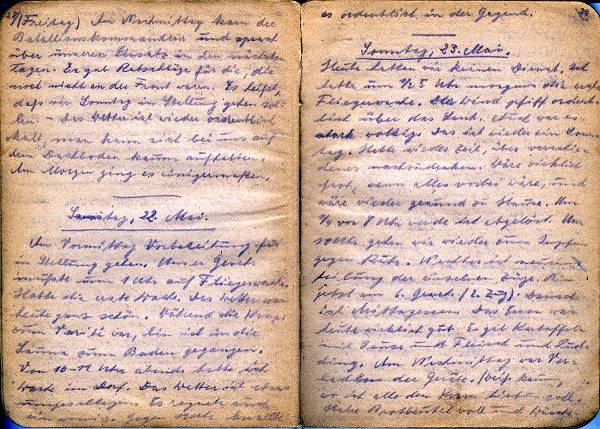 (Freitag) Am Nachmittag kam der
Bataillonskommandeur und sprach
über unseren Einsatz in den nächsten
Tagen. Er gab Ratschläge für die, die
noch nicht an der Front waren. Es heißt,
daß wir Sonntag in Stellung gehen sol-
len. - Das Wetter ist wieder ordentlich
kalt, man kann sich bei uns auf
dem Dachboden kaum aufhalten.
Am Morgen ging es einigermaßen.
Samstag, 22. Mai.
Am Vormittag Vorbereitung für
in Stellung gehen. Unser Gerät
mußte um 1 Uhr auf Fliegerwache.
Hatte die erste Wache. Das Wetter war
heute ganz schön. Während die Komp.
zum Varité war, bin ich in die
Sauna zum Baden gegangen.
Von 10-11 Uhr abends hatte ich
Wache im Dorf. Das Wetter ist etwas
umgeschlagen. Es regnete
ein wenig. Gegen
es ordentlich in der Gegend.
Sonntag, 23. Mai.
Heute hatten wir keinen Dienst. Ich
hatte um 1/2 5 Uhr morgens die erste
Fliegerwache. Der Wind pfiff ordent-
lich über das Land. Auch war es
stark wolkig. Das ist wieder ein Sonn-
tag. Hatte wieder Zeit, über verschie-
denes nachzudenken. Wäre wirklich
froh, wenn alles vorbei wäre, und
wäre wieder gesund zu Hause. Um
vor 8 Uhr wurde ich abgelöst. Um
sollte gehen wir wieder zum Impfen
gegen Ruhr. Nachher ist
teilung der einzelnen Züge. Bin
jetzt am 6. Gesch. (2. Zug). Danach
ist Mittagessen. Das Essen war
heute wirklich gut. Es gab Kartoffeln
mit Sause und Fleisch und Pud-
ding. Am Nachmittag war Ver-
ladten der Geräte. (Weiß kaum,
wo ich all den Kram hintun soll.
Habe Brotbeutel voll und